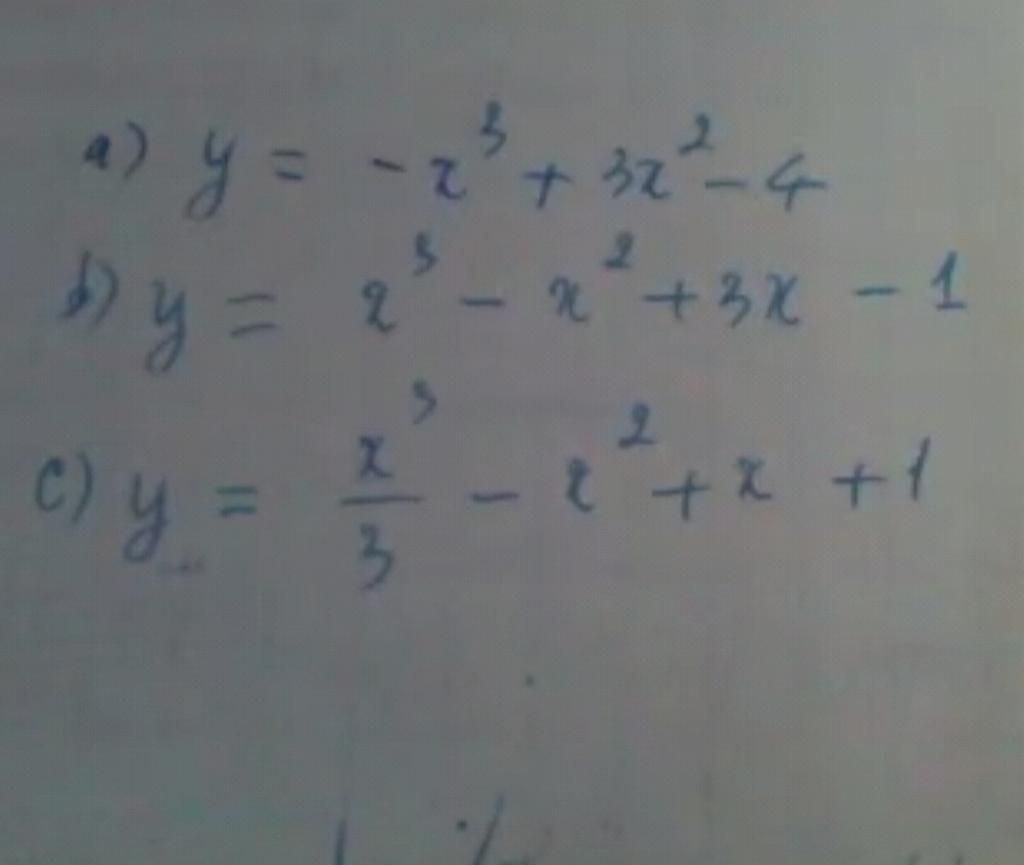 a) y = -x³ + 3x² - 4
b) y = x³ - x² + 3x - 1
c) y = x³/3 - x² + x + 1